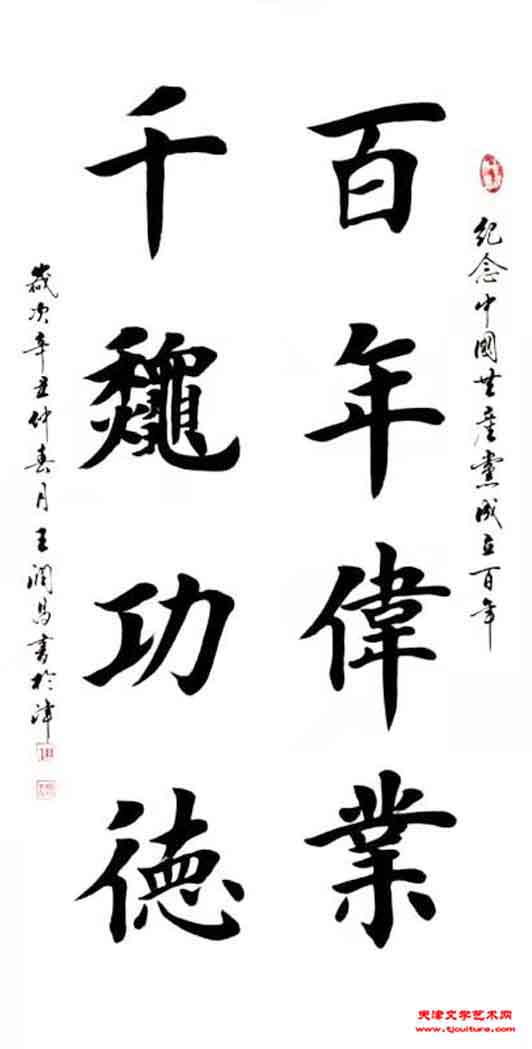 紀念中國共産黨成立百年
百年偉業
千龝功德
歲次辛丑仲春月王潤昌書於津
天津文学艺术网
www.tjculture.com